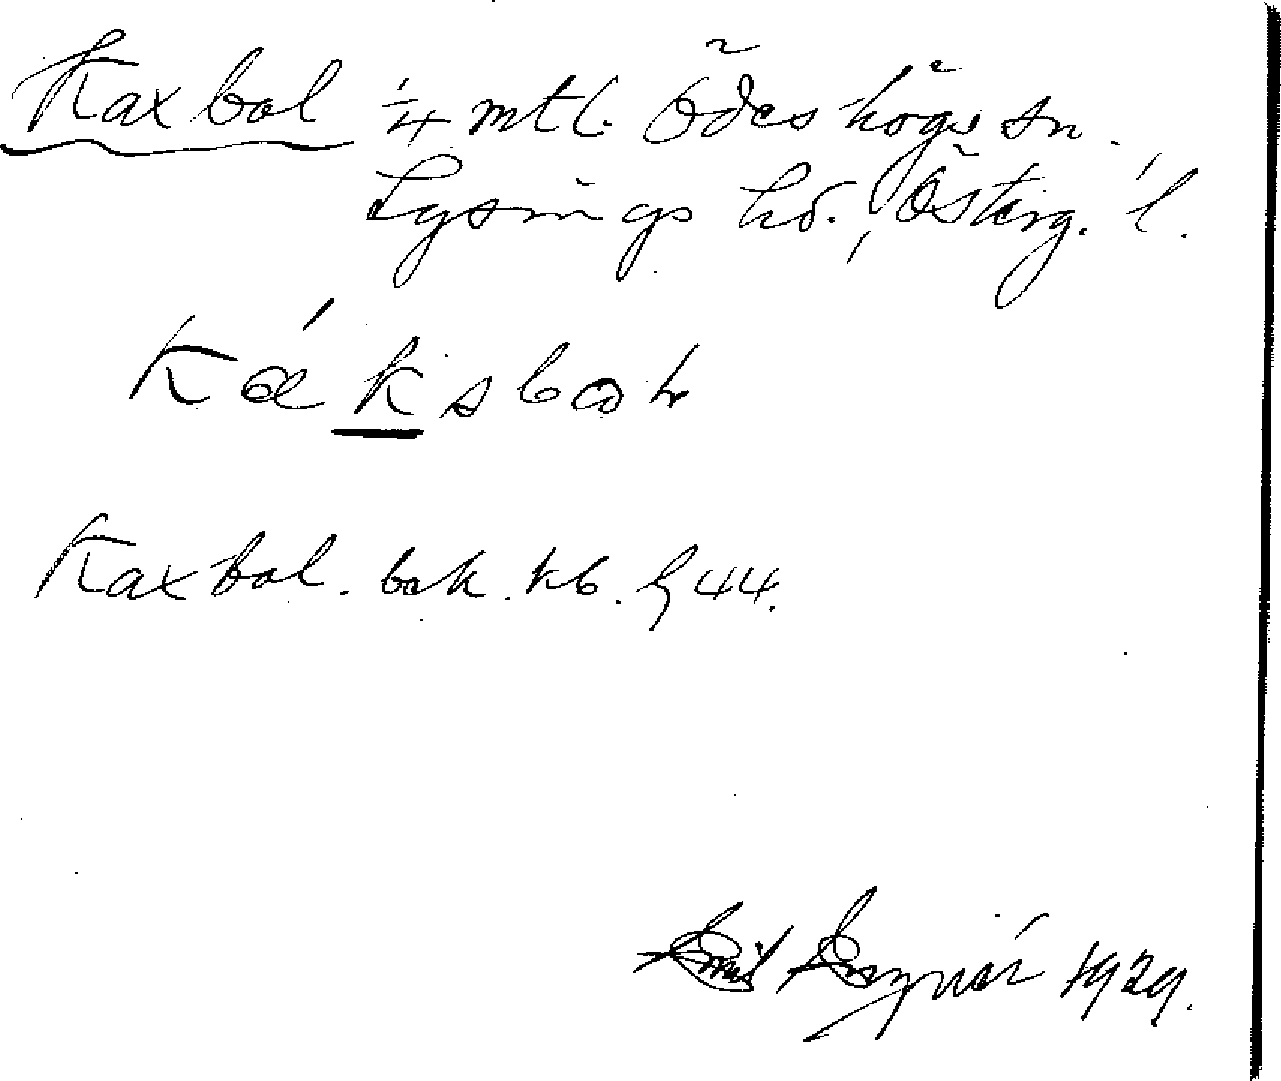 Kaxbol ¼ mtl. Ödeshögs sn.
Lysings hd., Österg. l.
Káksbo
Kaxbol. bok. kb. § 44.
Emil 1929.